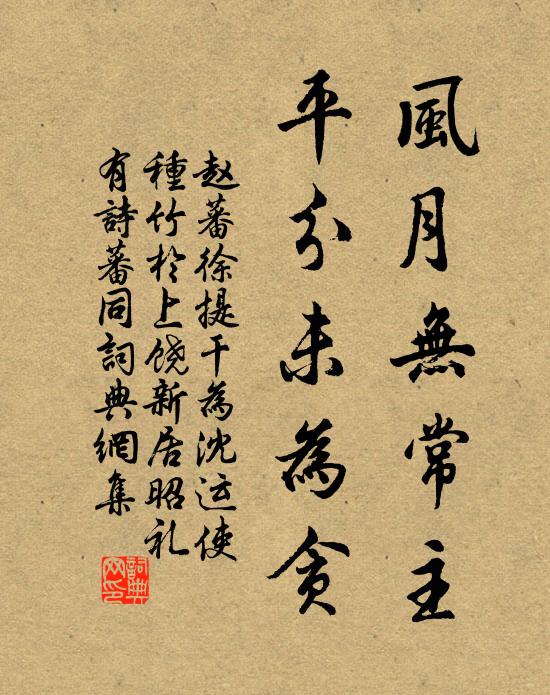 風月無常主
平分未為貪
赵蕃徐提干為沈运使
種竹於上饶新居昭礼
有詩蕃同詞典網集
詞典
网印